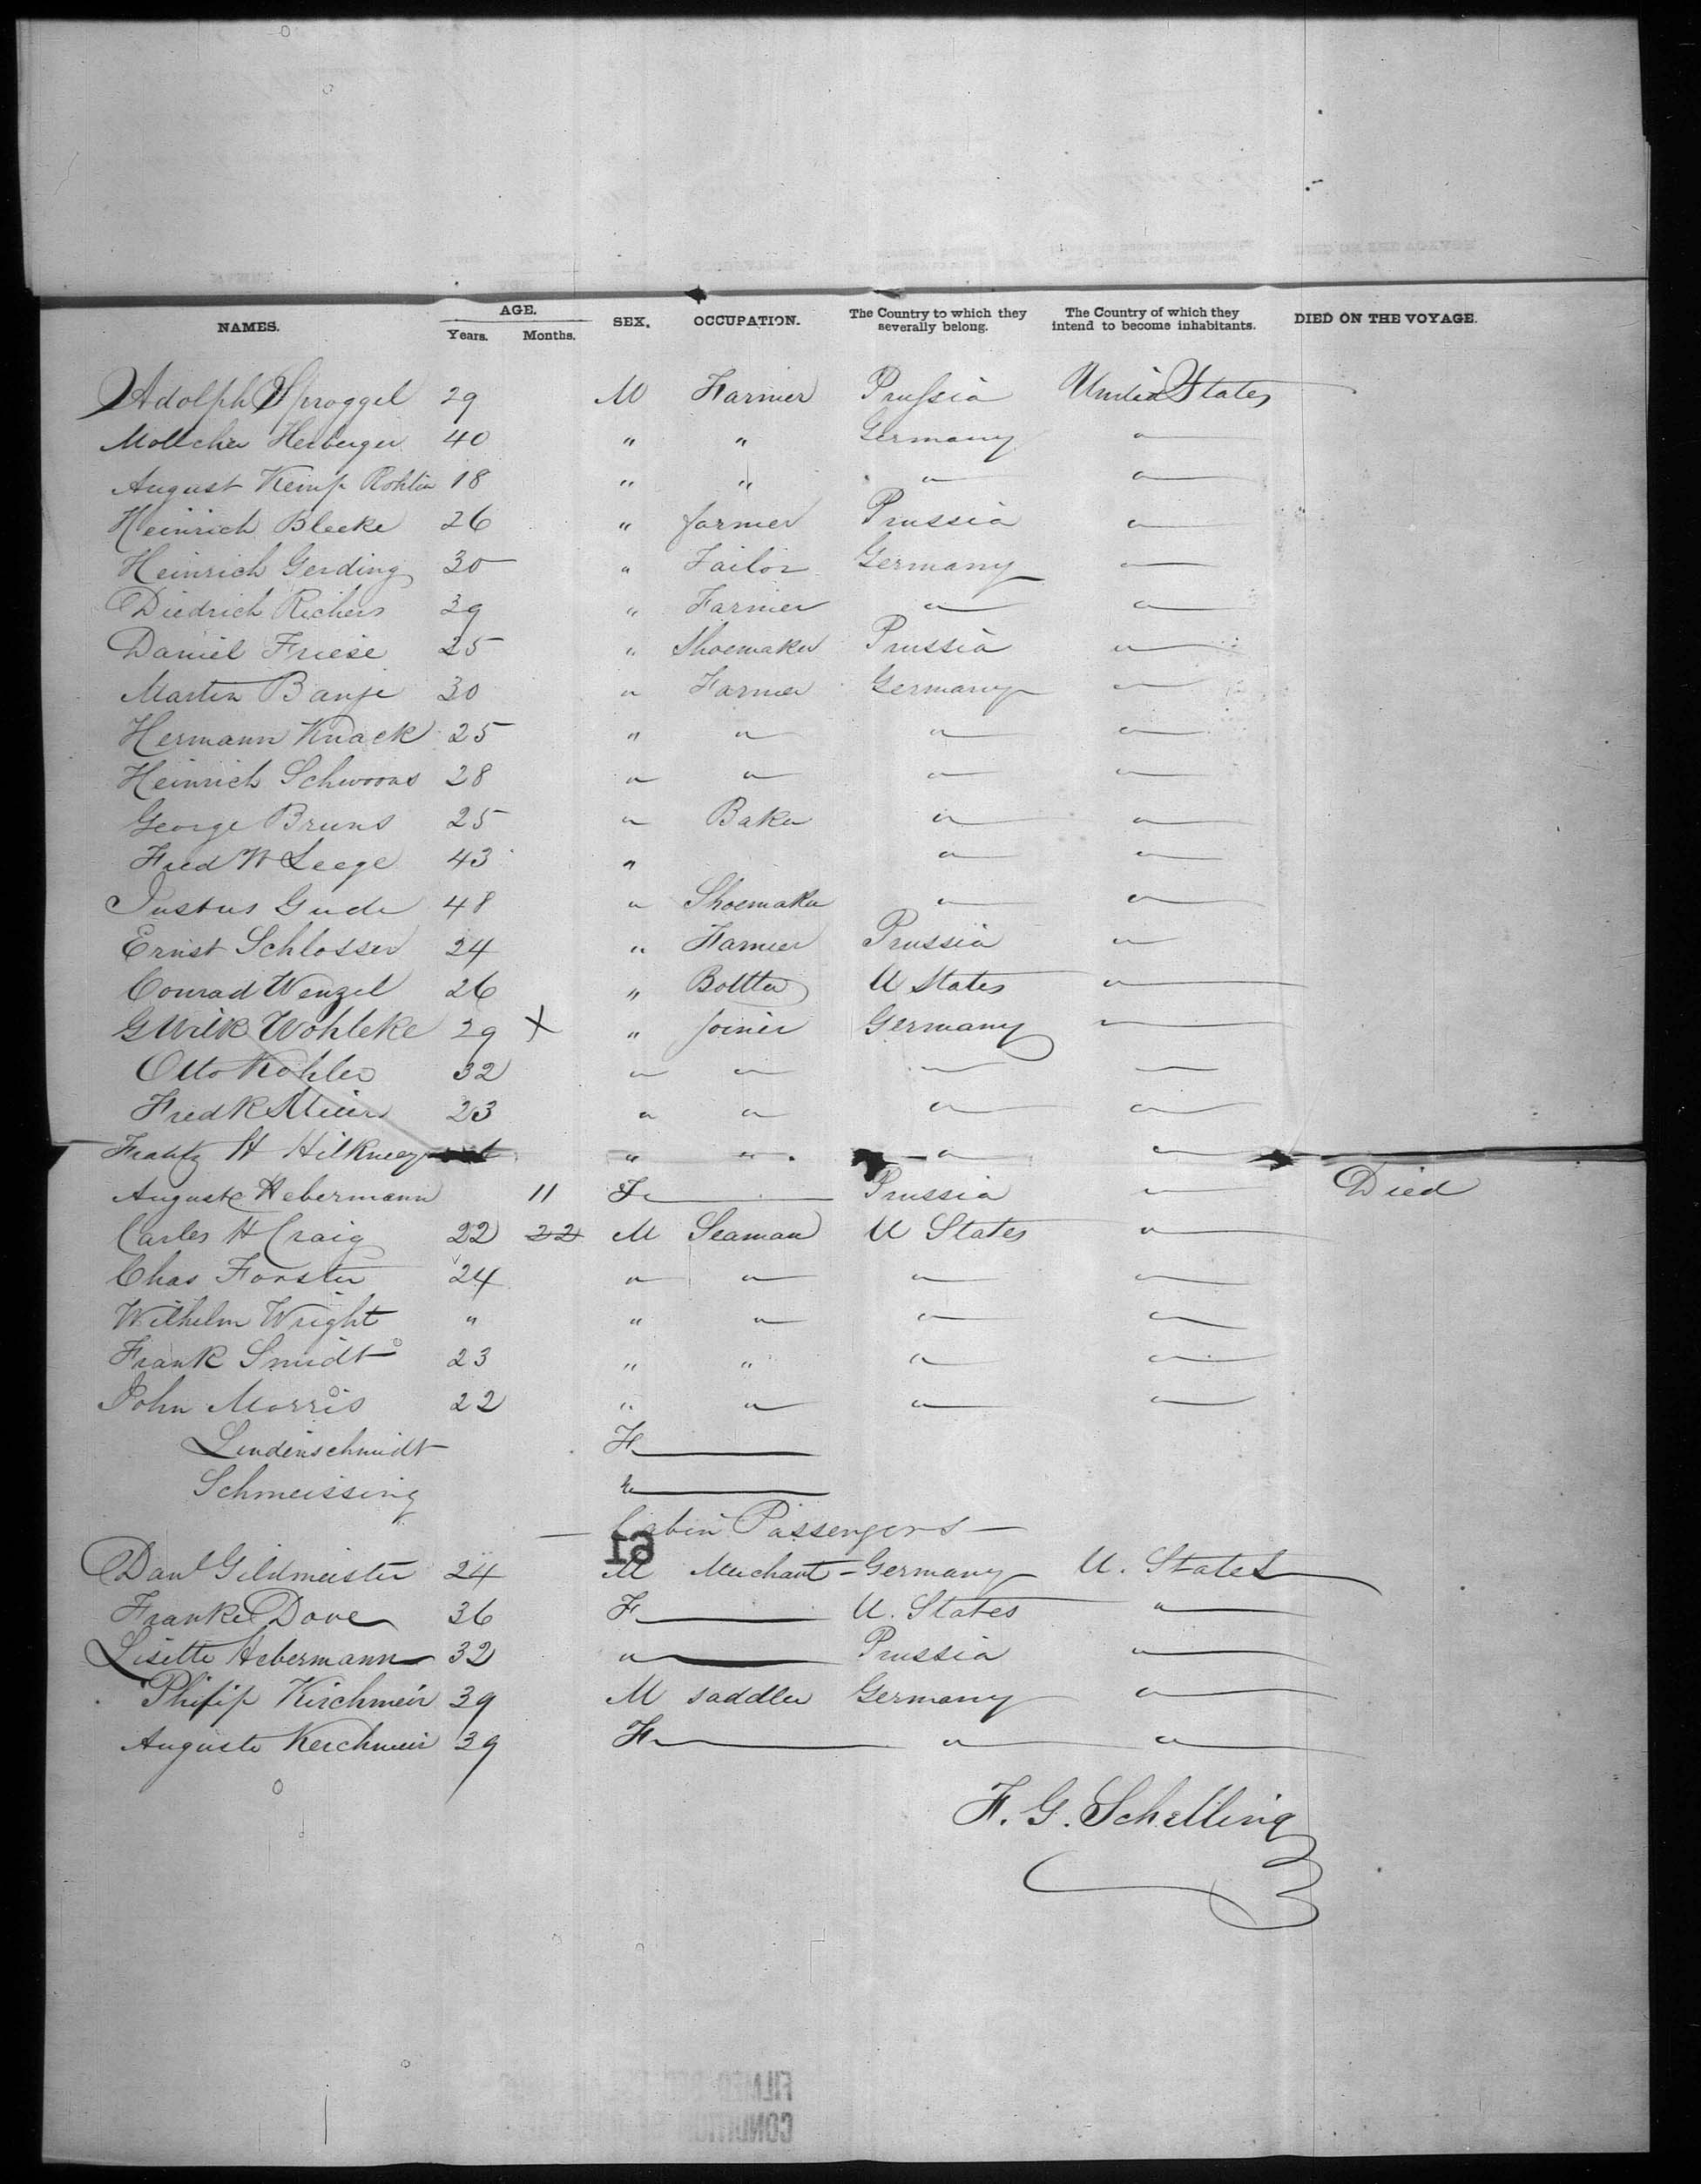 NAMES. AGE. Years. Months. SEX. OCCUPATION. The Country to which they severally belong. The Country of which they intend to become inhabitants. DIED ON THE VOYAGE.
Adolph Sproggel 29 M Farmer Prussia United States
Heiberger 40 " " Germany "
August Kemp 18 " " " "
Heinrich Bleeke 26 " farmer Prussia "
Heinrich Gerding 30 " Tailor Germany "
Diedrich Richers 39 " Farmer " "
Daniel Friese 25 " Shoemaker Prussia "
Martin Banje 30 " Farmer Germany "
Hermann Knack 25 " " " "
Heinrich Schwooas 28 " " " "
George Bruns 25 " Baker " "
Fred W Leege 43 " " "
Justus Gude 48 " Shoemaker " "
Ernst Schlosser 24 " Farmer Prussia "
Conrad Wenzel 26 " U States "
G Wilk Wohleke 29 X " joiner Germany "
Otto Kohler 32 " " " "
Fredk Meier 23 " " " "
H " " " "
Auguste Hebermann 11 F Prussia " Died
Carles H Craig 22 22 M Seaman U States "
Chas Forster 24 " " " "
Wilhelm Wright " " " " "
Frank Smidt 23 " " " "
John Morris 22 " " " "
Lindenschmidt F
Schmeissing "
— Cabin Passengers —
19
Danl Gildmeister 24 M Merchant - Germany U. States
Franke Dove 36 F U. States "
Lisette Hebermann 32 " Prussia "
Philip Kirchmeir 39 M saddler Germany "
Auguste Kerchmeir 39 F " "
F. G. Schelling